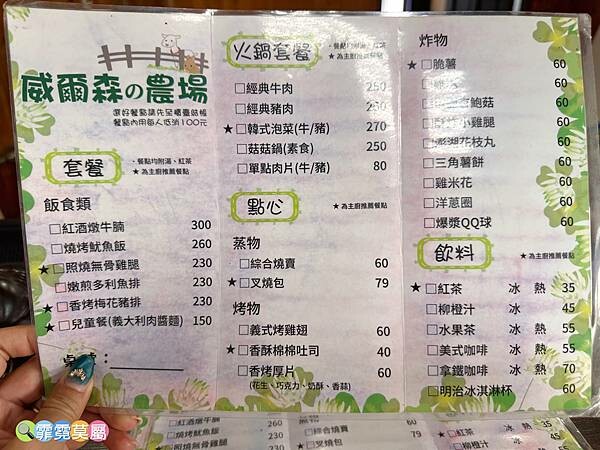 威爾森の農場
選好餐點請先至櫃臺結帳
餐點內用每人低消100元
套餐
・餐點均附湯、紅茶
★為主廚推薦餐點
飯食類
□紅酒燉牛腩 300
□燒烤魷魚飯 260
★□照燒無骨雞腿 230
□嫩煎多利魚排 230
★□香烤梅花豬排 230
★□兒童餐(義大利肉醬麵) 150
火鍋套餐
・餐點均附湯、紅茶
★為主廚推薦餐點
□經典牛肉 250
□經典豬肉 250
★□韓式泡菜(牛/豬) 270
□菇菇鍋(素食) 250
□單點肉片(牛/豬) 80
點心
★為主廚推薦餐點
蒸物
□綜合燒賣 60
★□叉燒包 79
烤物
□義式烤雞翅 60
★□香酥棉棉吐司 40
□香烤厚片 60
(花生、巧克力、奶酥、香蒜)
炸物
★□脆薯 60
60
鮑菇 60
小雞腿 60
澎湖花枝丸 60
□三角薯餅 60
□雞米花 60
□洋蔥圈 60
□爆漿QQ球 60
飲料
★為主廚推薦餐點
★□紅茶 冰 熱 35
□柳橙汁 冰 熱 45
□水果茶 冰 熱 55
□美式咖啡 冰 熱 55
□拿鐵咖啡 冰 熱 70
□明治冰淇淋杯 60
霏霓莫屬
□紅酒燉牛腩 300
□燒烤魷魚飯 260
□照燒無骨雞腿 230
□綜合燒賣 60
★□叉燒包 79
★□紅茶 冰 熱 35
□柳橙汁 冰 熱 45